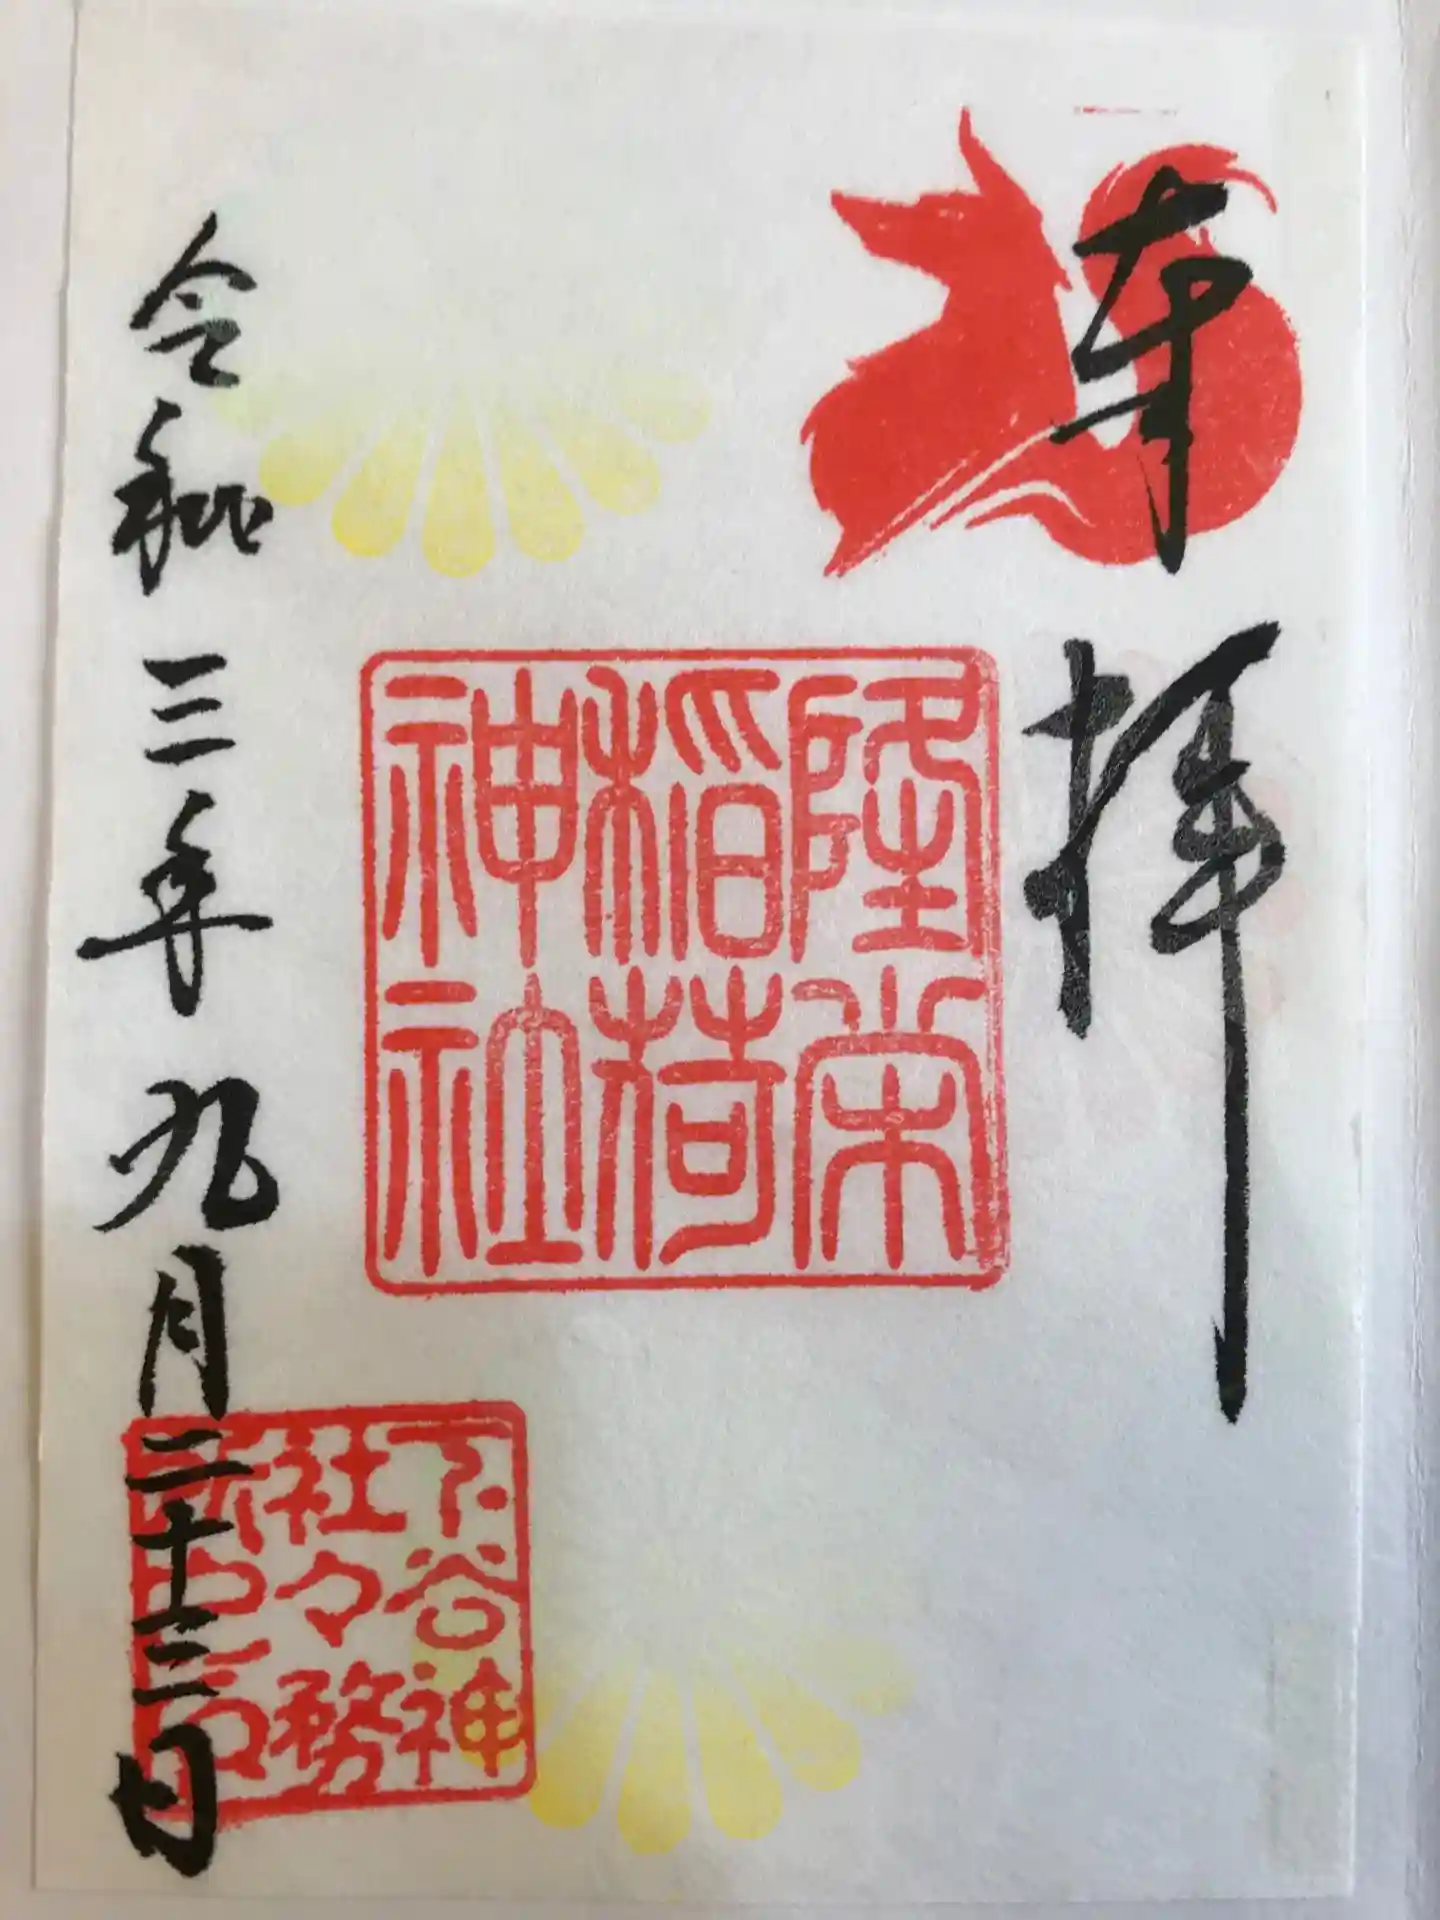 奉拝
隆栄
稲荷
神社
令和三年九月二十三日
下谷神
社々務
所之印